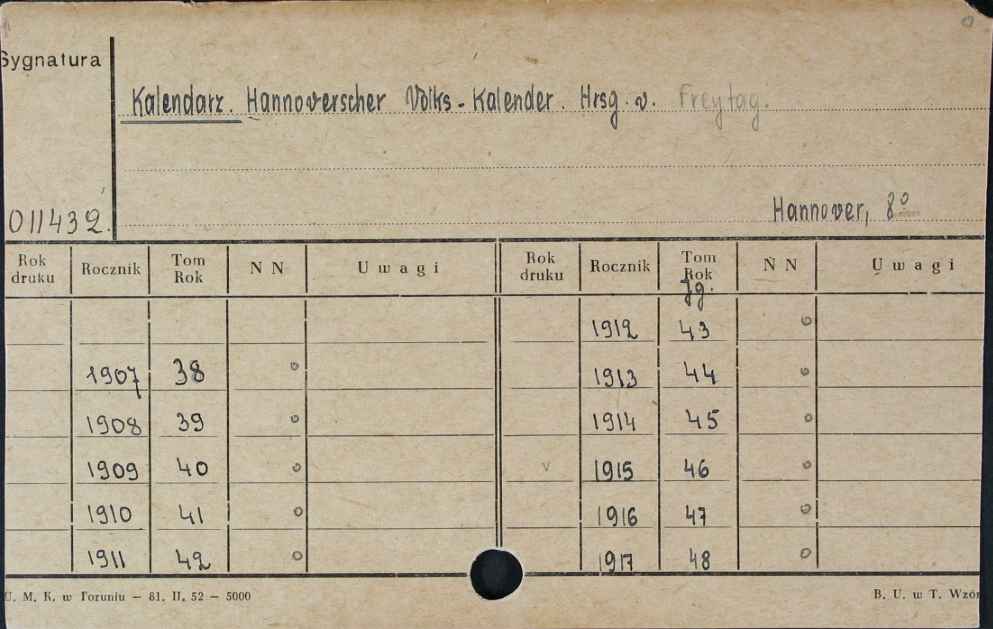 Sygnatura
Kalendarz. Hannoverscher Volks-Kalender. Hrsg. v. Freytag.
011432.
Hannover, 8º
Rok druku Rocznik Tom Rok N N Uwagi Rok druku Rocznik Tom Rok N N Uwagi
Jg.
1912 43 o
1907 38 o 1913 44 o
1908 39 o 1914 45 o
1909 40 o v 1915 46 o
1910 41 o 1916 47 o
1911 42 o 1917 48 o
U. M. K. w Toruniu — 81. II. 52 — 5000 B. U. w T. Wzór